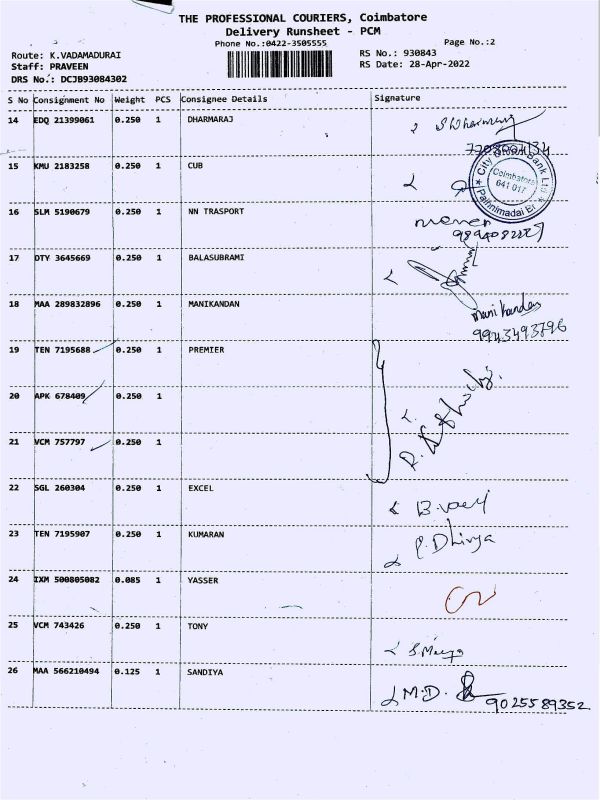 THE PROFESSIONAL COURIERS, Coimbatore
Delivery Runsheet - PCM
Phone No.:0422-3505555
Page No.:2
Route: K.VADAMADURAI
RS No.: 930843
Staff: PRAVEEN
RS Date: 28-Apr-2022
DRS No.: DCJB93084302
S No Consignment No Weight PCS Consignee Details Signature
14 EDQ 21399061 0.250 1 DHARMARAJ
15 KMU 2183258 0.250 1 CUB
City Union Bank Ltd
Coimbatore
641 017
16 SLM 5190679 0.250 1 NN TRASPORT
17 DTY 3645669 0.250 1 BALASUBRAMI
18 MAA 289832896 0.250 1 MANIKANDAN
Manikandan
9943493796
19 TEN 7195688 0.250 1 PREMIER
20 APK 678409 0.250 1
21 VCM 757797 0.250 1
22 SGL 260304 0.250 1 EXCEL
23 TEN 7195907 0.250 1 KUMARAN P.Dhivya
24 IXM 500805082 0.085 1 YASSER
25 VCM 743426 0.250 1 TONY
26 MAA 566210494 0.125 1 SANDIYA M.D.
9025589352